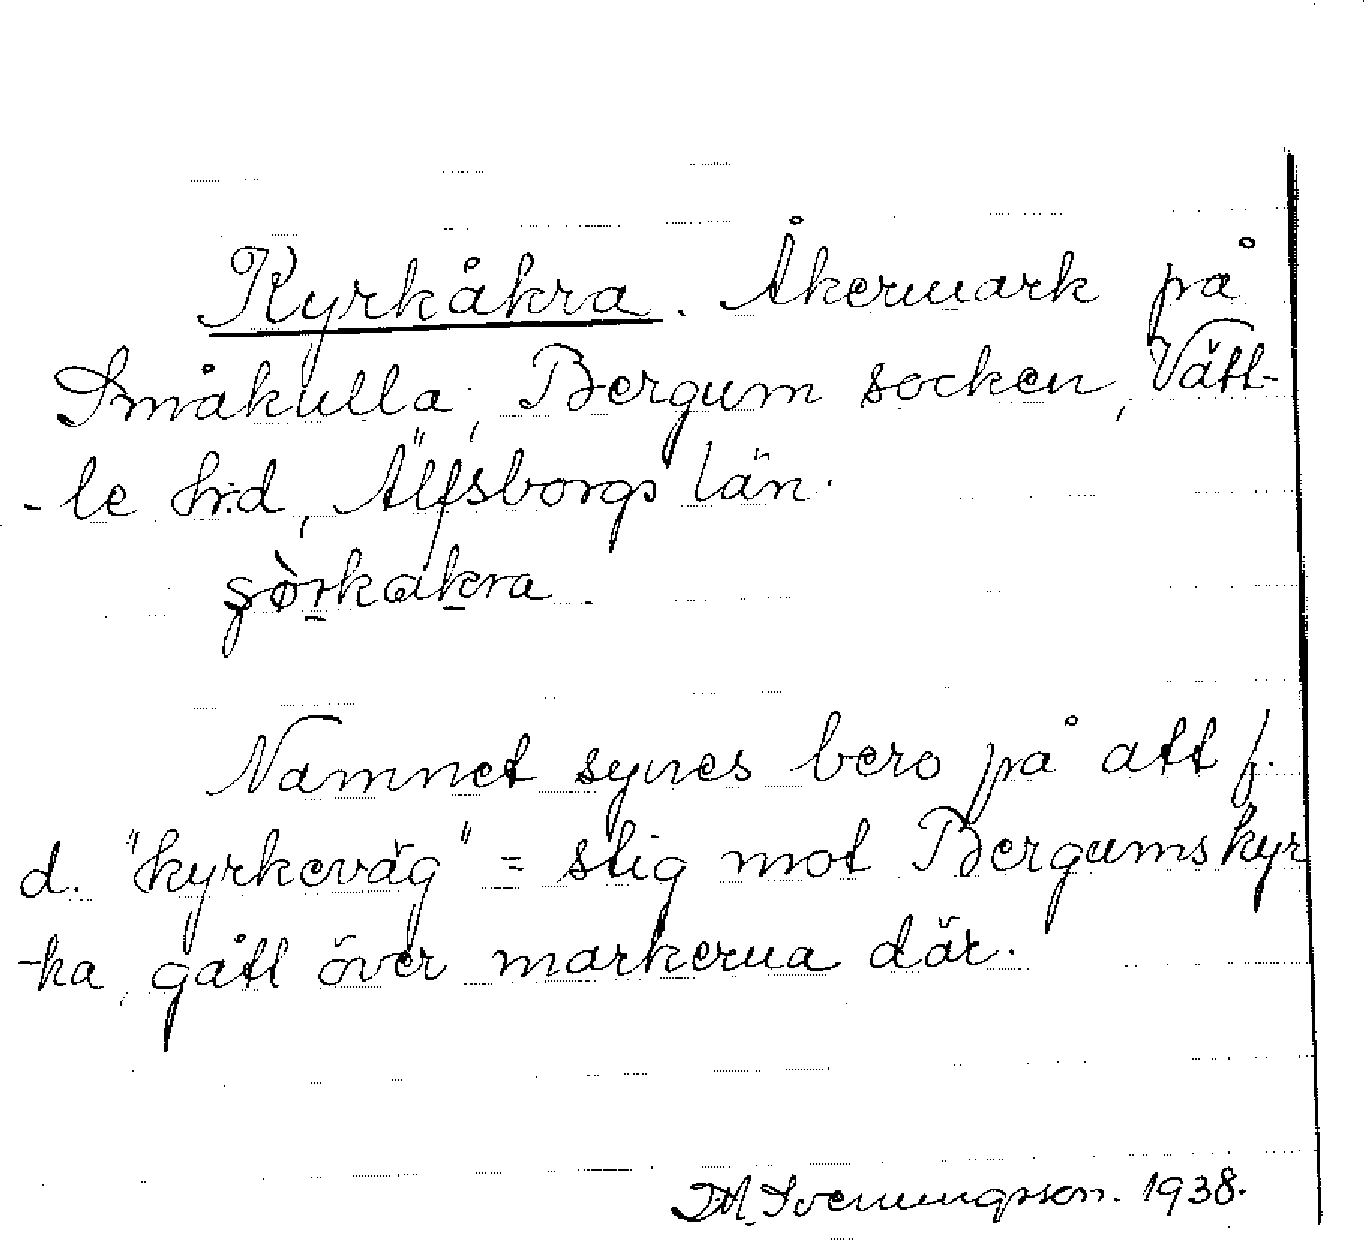 Kyrkåkra. Åkermark på
Småkulla, Bergum socken, Vätt-
-le hrd, Älfsborgs län.
Namnet synes bero på att f.
d. "kyrkeväg" = stig mot Bergumskyr
-ka, gått över markerna där.
Svenningsson. 1938.